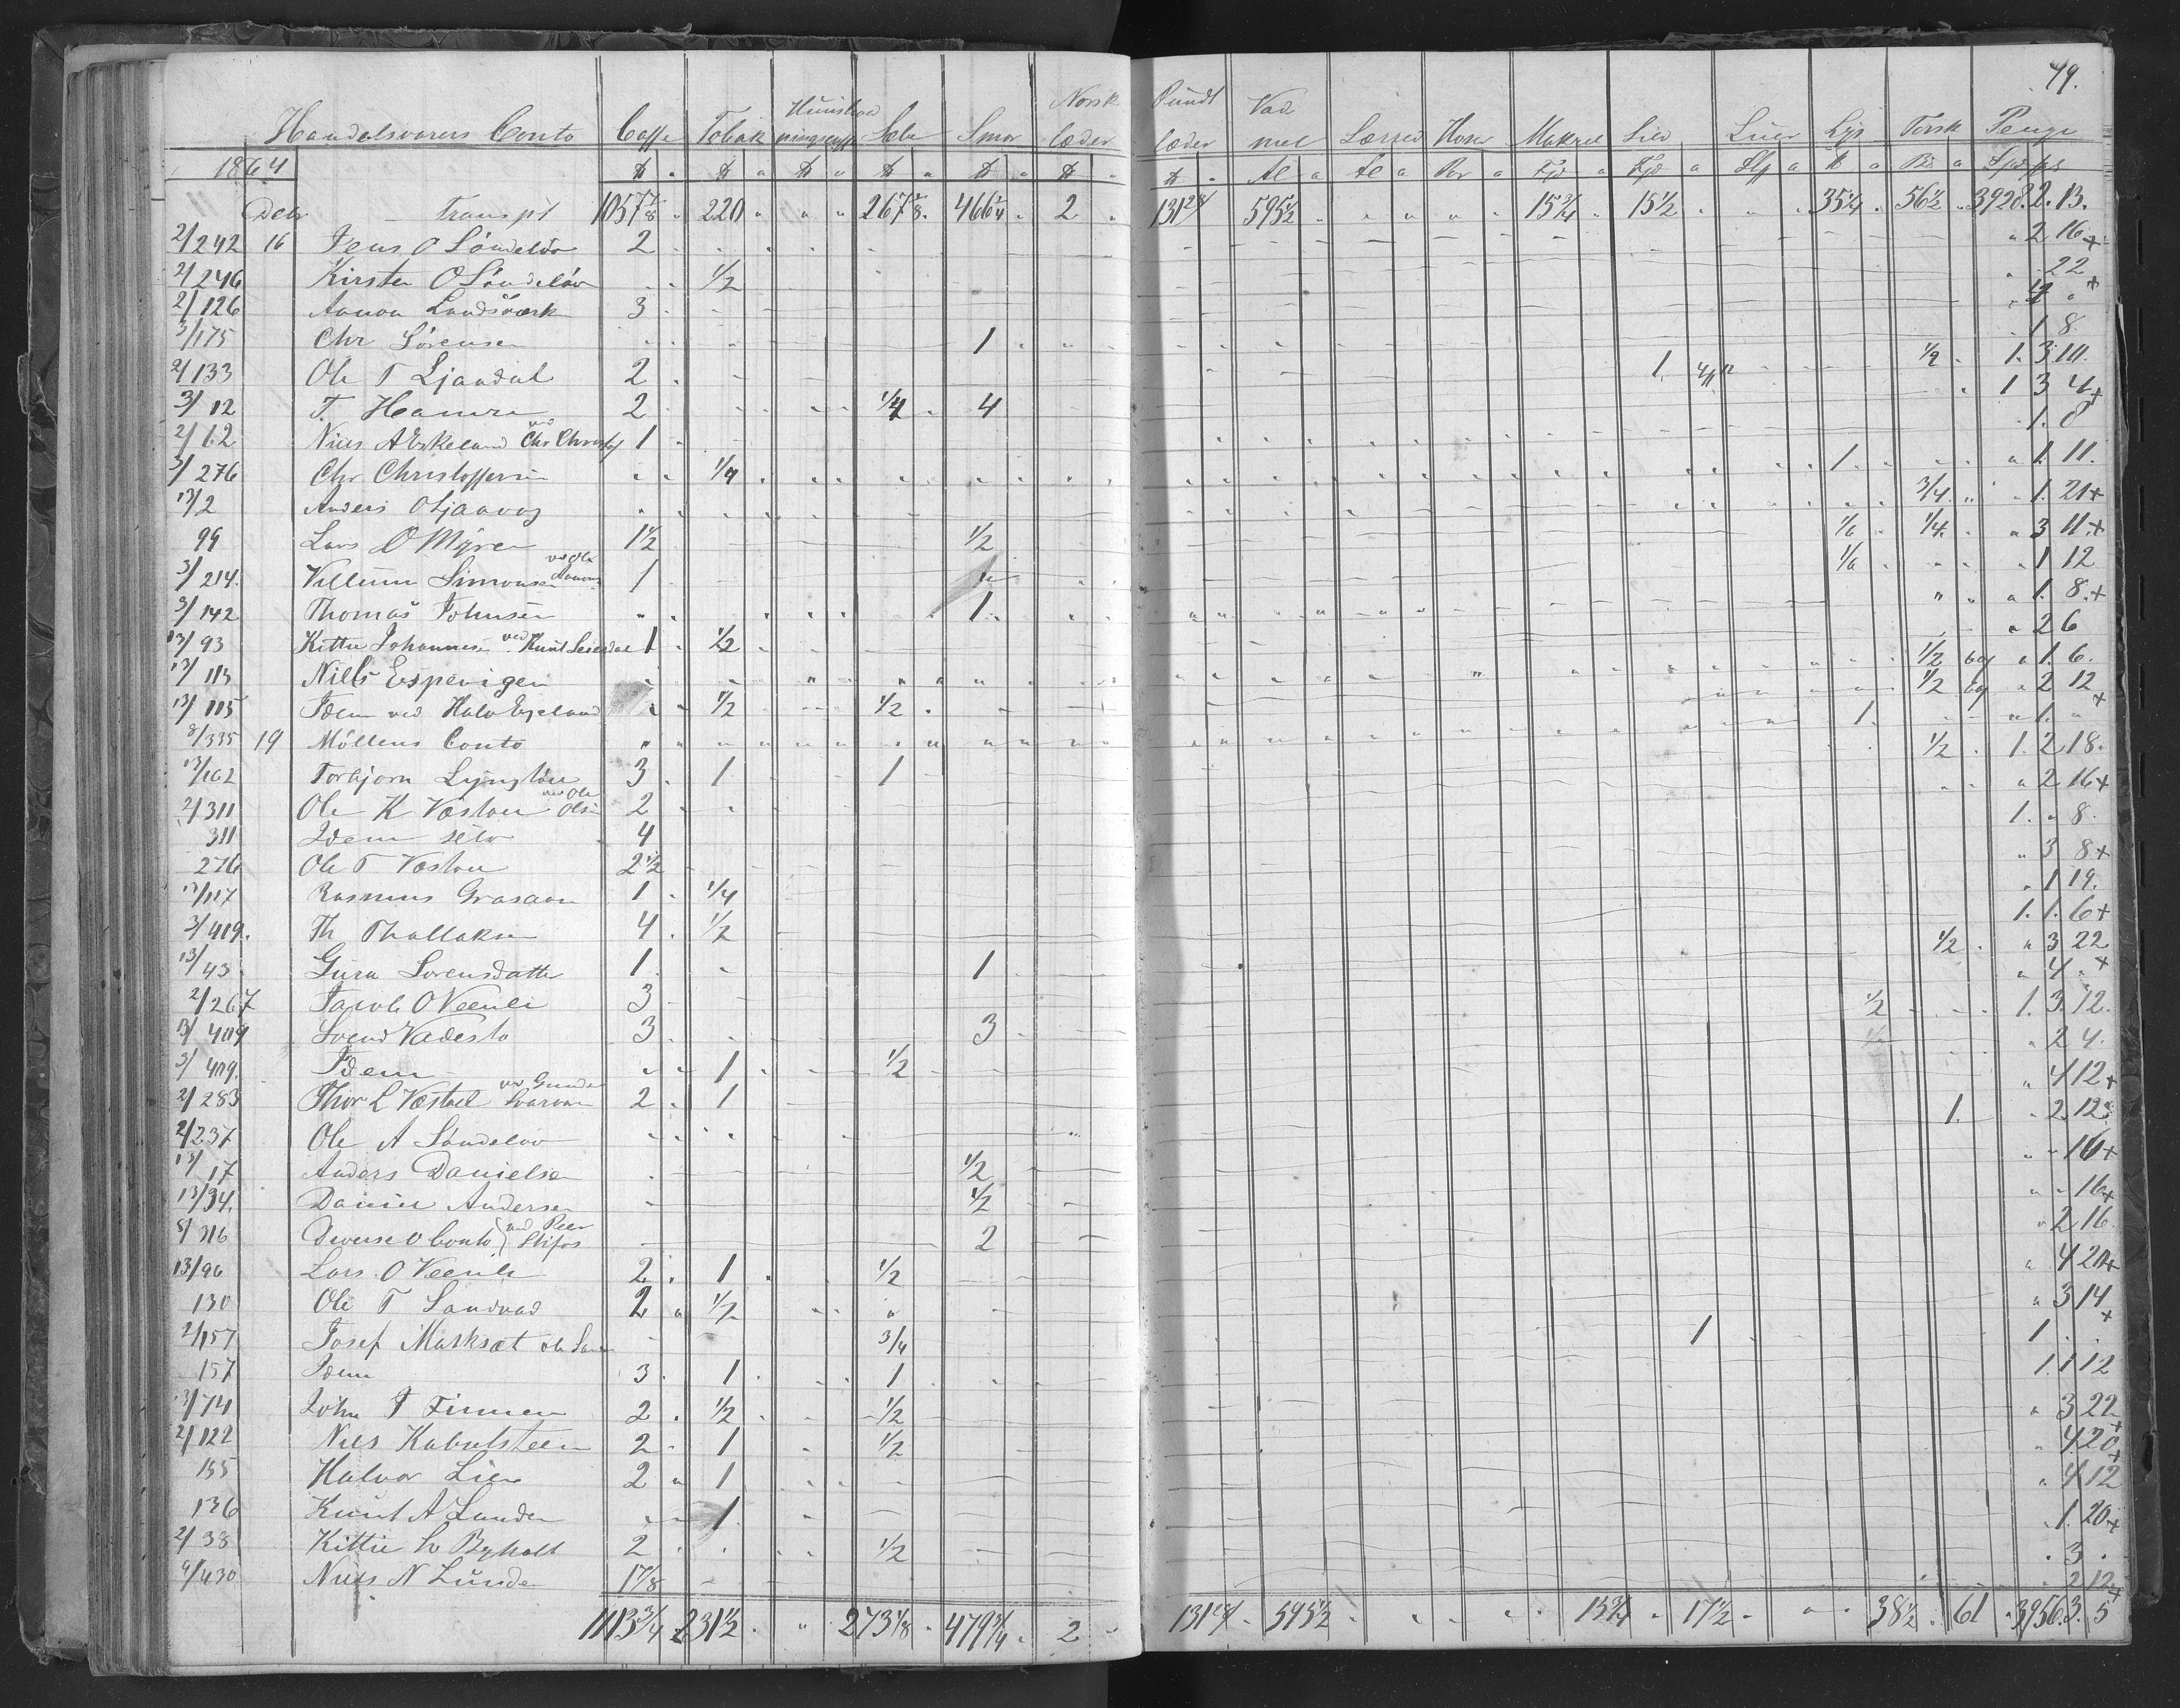 49.
Handelsvarens Conto Caffe Tobak Sæbe Smør Norsk læder Pundt læder Vad mel Lærred Hoser Makrel Sild Liier Lys Torsk Penge
1864 ℔ ℔ ℔ ℔ ℔ ℔ ℔ Al Al Par Fjd Fjd ℔
Debr Transpt 1057 7/8 220 " " 267 5/8 466 1/4 2 131 595 1/2 15 3/4 15 1/2 35 1/4 56 1/2 3928. 2. 13.
2/242 16 Jens O Söndeløv 2 " 2 16 +
2/246 Kirsten O Söndeløv 1/2 " 22 +
2/126 Aanon Landsværk 3 4 "
3/175 Chr Sörensen 1 1 8
2/133 Ole T Ljandal 2 1 1/2 1. 3 10.
3/12 T. Hamre 2 4 1 3 4 +
2/62 Niels A Eskeland ved Chr Christof 1 1. 8
3/276 Chr Christoffersen 1/4 1 " 1 11.
13/2 Anders O Ljaavaag 3/4 " 1. 21 +
99 Lars O Myren 1 1/2 1/2 1/6 1/4 " 3 11. +
3/214. Villum Simonsen ved Ole Aanons 1 " 1/6 " 1 12
3/142 Thomas Johnsen 1 " 1. 8. +
13/93 Kittie Johannesen ved Knut 1 1/2 " 2 6
13/113 Niels Espevigen 1/2 " 1. 6.
13/115 Idem ved Halv Egeland 1/2 1/2 1/2 " 2 12 +
8/335 19 Möllens Conto 1. " 1. "
13/162 Torbjørn Lyngtøn 3 1 1 1/2 1. 2 18.
2/311 Ole K Væstøl ved Ole Olsen 2 " 2 16 +
311 Idem selv 4 1. " 8.
276 Ole T Væstøl 2 1/2 " 3 8 +
13/117 Rasmus Graaaen 1 1/4 " 1 19.
3/419. Th Thallaksen 4 1/2 1. 1. 6 +
13/43 Guro Sorensdatter 1 1 1/2 " 3 22
2/267 Jacob O Veenli 3 " 4 " +
13/409 Svend Vadestø 3 3 1/2 1. 3. 12.
3/409. Idem 1 1/2 " 2 4.
2/283 Thor L Væstøl ved Gunder 2 1 " 4 12 +
2/237 Ole A Söndeløv 1. " 2 12
13/17 Anders Danielsen 1/2 " " 16 +
13/34. Daniel Andersen 1/2 " " 16 +
8/316 Diverse O Conto ved Peer Stifos 2 " 2 16
13/96 Lars O Veenli 2 1 1/2 " 4 20 +
130 Ole T Sandnæs 2 1/2 " " 3 14 +
2/157 Josef Marksæt Ole 3/4 1 1 " "
157 Idem 3 1 1 1. 1 12
13/74 John J Finnen 2 1/2 1/2 " 3 22 +
2/122 Niels Kabulsteen 2 1 1/2 " 4 20 +
155 Halvor Lien 2 1 " 4 12
136 Knut A Lunden 1 " 1. 20 +
2/38 Kittie L Bykolt 2 1/2 " 3 "
9/430 Niels N Lunde 1 7/8 " 2 12 +
1113 3/4 231 1/2 " 273 1/8 479 3/4 2 131 595 1/2 15 3/4 17 1/2 " 38 1/2 61 3956. 3. 5